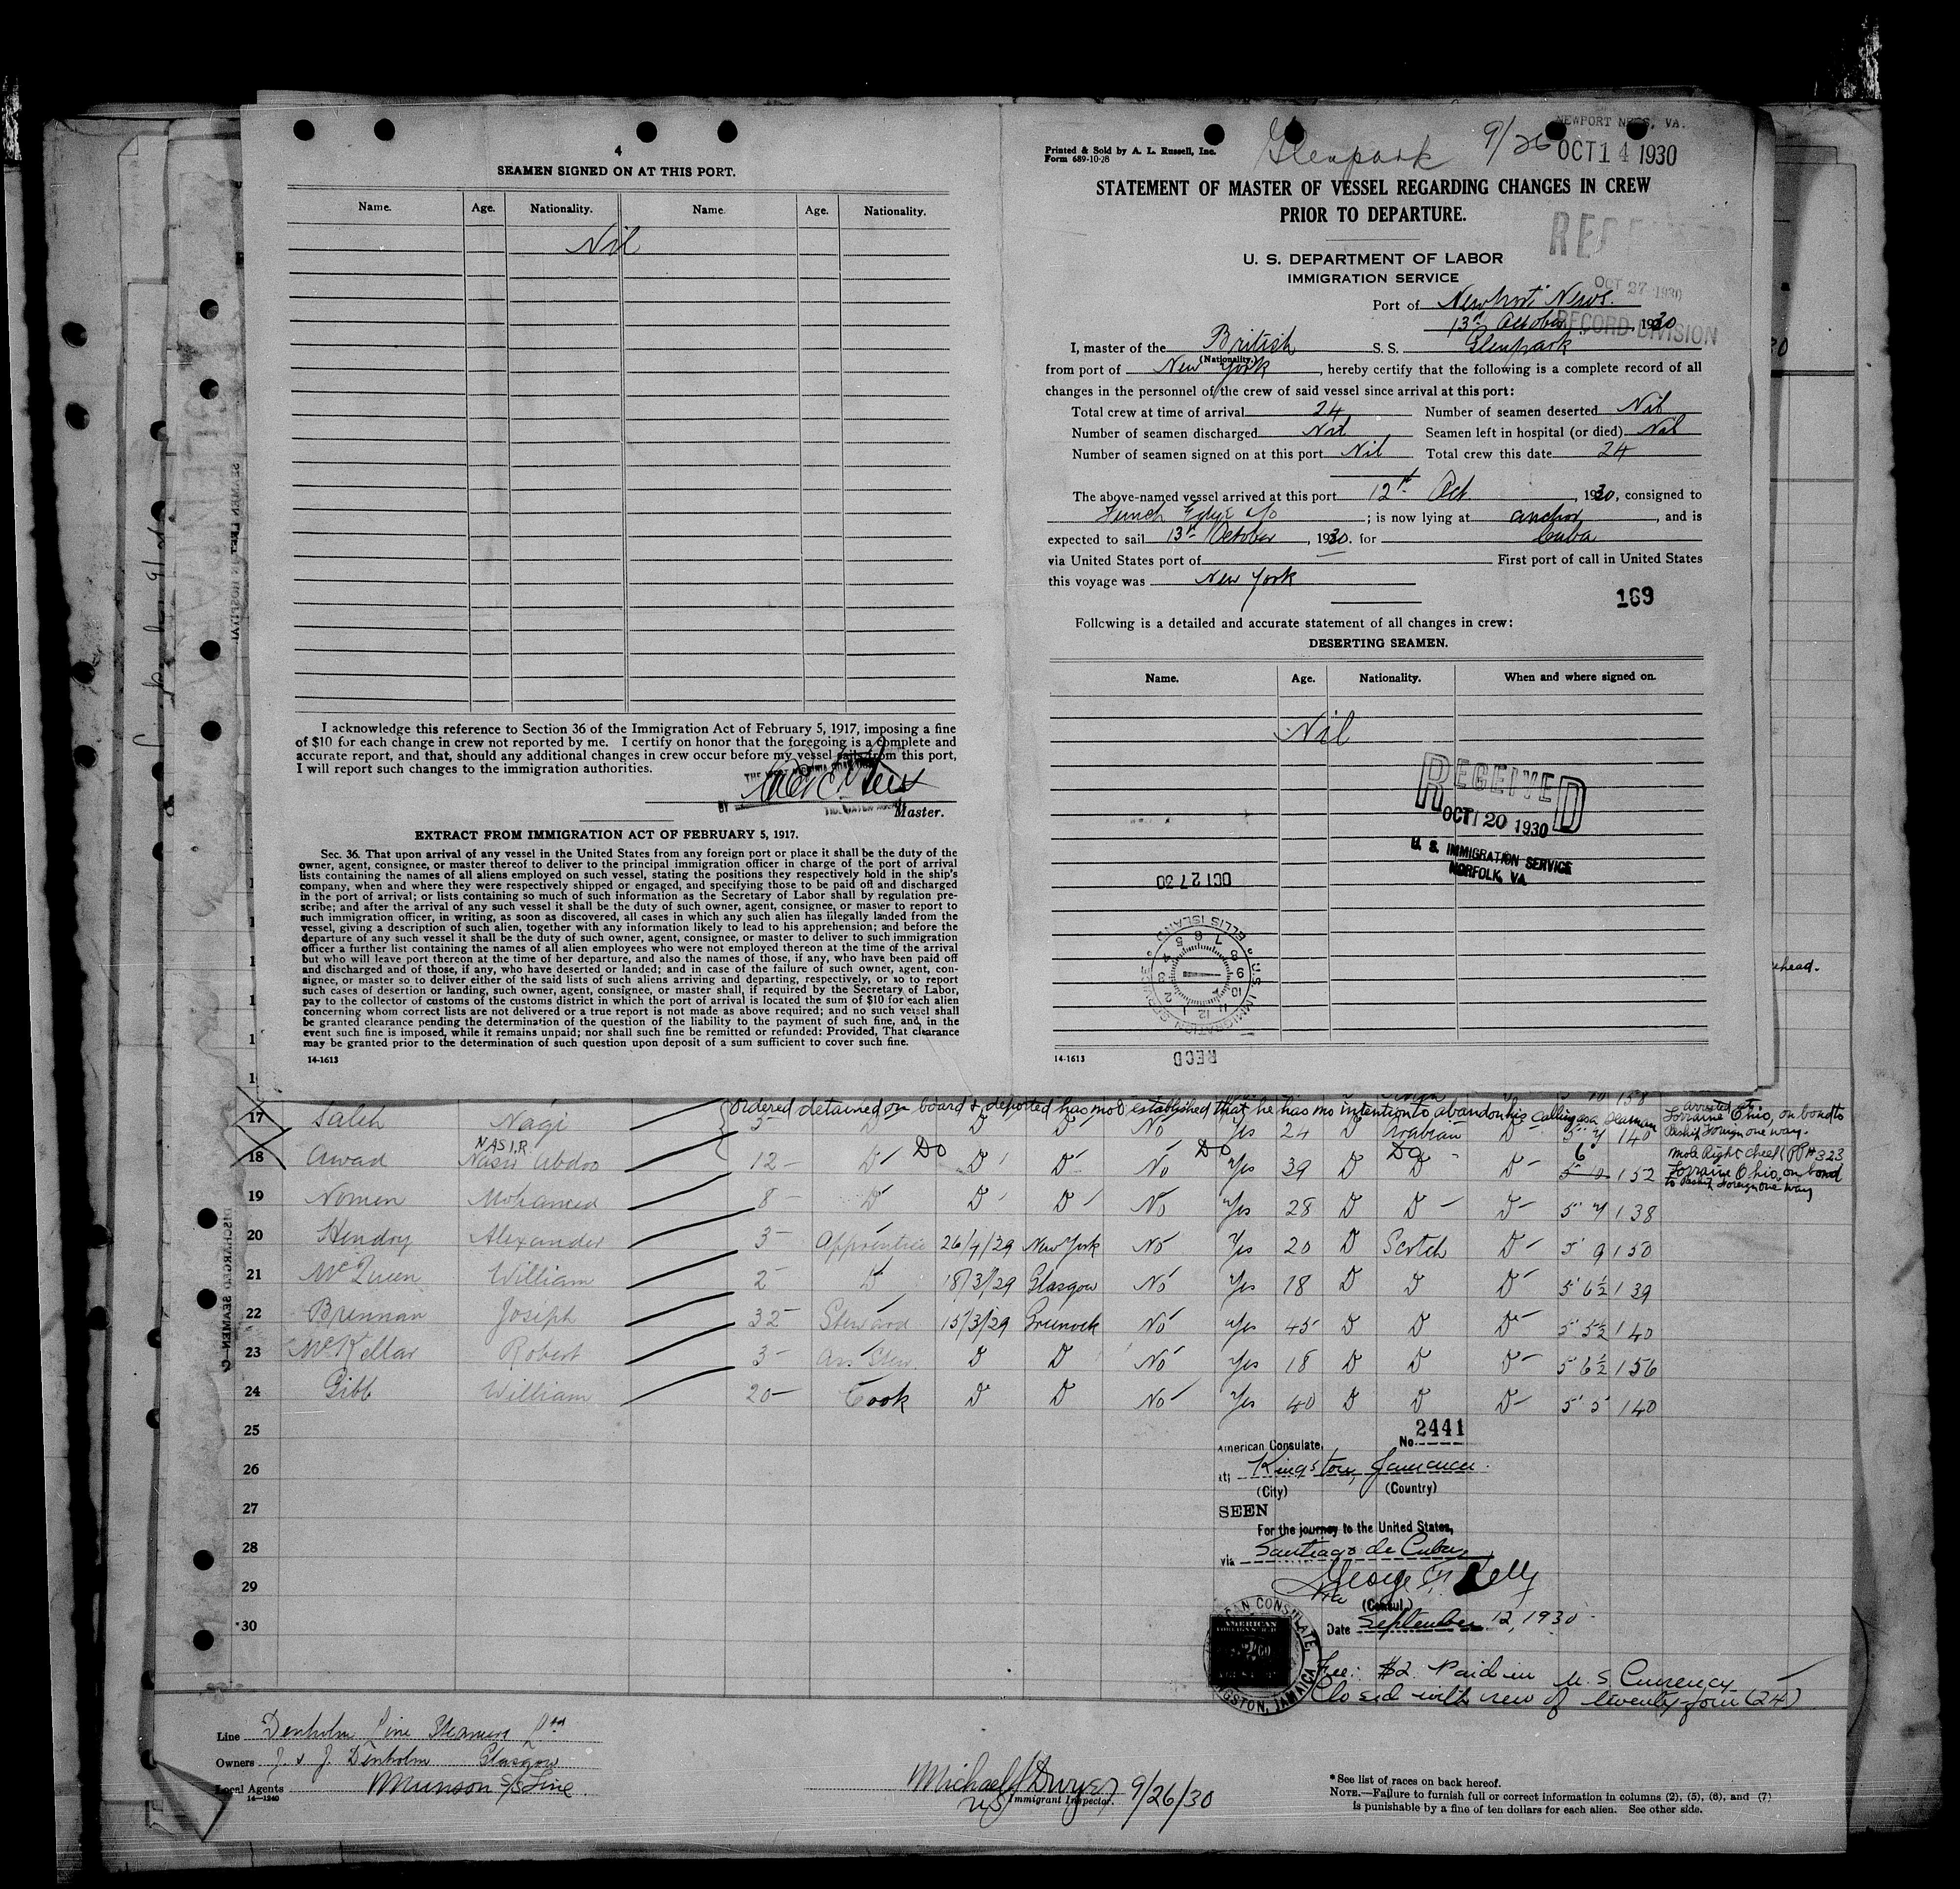 4
SEAMEN SIGNED ON AT THIS PORT.
Name. Age. Nationality. Name. Age. Nationality.
Nil
I acknowledge this reference to Section 36 of the Immigration Act of February 5, 1917, imposing a fine
of $10 for each change in crew not reported by me. I certify on honor that the foregoing is a complete and
accurate report, and that, should any additional changes in crew occur before my vessel sails from this port,
I will report such changes to the immigration authorities.
BY
Master.
EXTRACT FROM IMMIGRATION ACT OF FEBRUARY 5, 1917.
Sec. 36. That upon arrival of any vessel in the United States from any foreign port or place it shall be the duty of the
owner, agent, consignee, or master thereof to deliver to the principal immigration officer in charge of the port of arrival
lists containing the names of all aliens employed on such vessel, stating the positions they respectively hold in the ship's
company, when and where they were respectively shipped or engaged, and specifying those to be paid off and discharged
in the port of arrival; or lists containing so much of such information as the Secretary of Labor shall by regulation pre-
scribe; and after the arrival of any such vessel it shall be the duty of such owner, agent, consignee, or master to report to
such immigration officer, in writing, as soon as discovered, all cases in which any such alien has illegally landed from the
vessel, giving a description of such alien, together with any information likely to lead to his apprehension; and before the
departure of any such vessel it shall be the duty of such owner, agent, consignee, or master to deliver to such immigration
officer a further list containing the names of all alien employees who were not employed thereon at the time of the arrival
but who will leave port thereon at the time of her departure, and also the names of those, if any, who have been paid off
and discharged and of those, if any, who have deserted or landed; and in case of the failure of such owner, agent, con-
signee, or master so to deliver either of the said lists of such aliens arriving and departing, respectively, or so to report
such cases of desertion or landing, such owner, agent, consignee, or master shall, if required by the Secretary of Labor,
pay to the collector of customs of the customs district in which the port of arrival is located the sum of $10 for each alien
concerning whom correct lists are not delivered or a true report is not made as above required; and no such vessel shall
be granted clearance pending the determination of the question of the liability to the payment of such fine, and, in the
event such fine is imposed, while it remains unpaid; nor shall such fine be remitted or refunded: Provided, That clearance
may be granted prior to the determination of such question upon deposit of a sum sufficient to cover such fine.
14-1613
Printed & Sold by A. L. Russell, Inc.
Form 689-10-28
Glenpark 9/26
NEWPORT NEWS, VA.
OCT 14 1930
STATEMENT OF MASTER OF VESSEL REGARDING CHANGES IN CREW
PRIOR TO DEPARTURE.
RECEIVED
OCT 27 1930
RECORD DIVISION
U. S. DEPARTMENT OF LABOR
IMMIGRATION SERVICE
Port of Newport News.
13th October, 1930
I, master of the British S. S. Glenpark
(Nationality.)
from port of New York, hereby certify that the following is a complete record of all
changes in the personnel of the crew of said vessel since arrival at this port:
Total crew at time of arrival 24 Number of seamen deserted Nil
Number of seamen discharged Nil Seamen left in hospital (or died) Nil
Number of seamen signed on at this port Nil Total crew this date 24
The above-named vessel arrived at this port 12th Oct, 1930, consigned to
Funch Edye; is now lying at anchor, and is
expected to sail 13th October, 1930. for Cuba
via United States port of First port of call in United States
this voyage was New York
169
Following is a detailed and accurate statement of all changes in crew:
DESERTING SEAMEN.
Name. Age. Nationality. When and where signed on.
Nil
RECEIVED
OCT 20 1930
U. S. IMMIGRATION SERVICE
NORFOLK, VA.
OCT 27 30
U.S. IMMIGRATION SERVICE ELLIS ISLAND
RECD
14-1613
ordered detained on board & deported has not established that he has no intention to abandon his calling as a seaman
Arrested at Lorraine Ohio, on bond to Reship Foreign one way.
17 Saleh Nagi 5 D D D No Yes 24 D Arabian D 5 7 140
NASIR
Do Do Do
18 Awad Nasir Abdoo 12 D D D No Yes 39 D D D 5 10 6 152
Mole Right cheek PP#323
Lorraine Ohio, on bond
to Reship Foreign one way
19 Nomen Mohamed 8 D D D No Yes 28 D D D 5 7 138
20 Hendry Alexander 3 Apprentice 26/4/29 New York No Yes 20 D Scotch D 5 9 150
21 McQueen William 2 D 18/3/29 Glasgow No Yes 18 D D D 5 6½ 139
22 Brennan Joseph 32 Steward 15/3/29 Greenock No Yes 45 D D D 5 5½ 140
23 McKellar Robert 3 Ass Stew. D D No Yes 18 D D D 5 6½ 156
24 Gibb William 20 Cook D D No Yes 40 D D D 5 5 140
25
26
27
28
29
*30
No. 2441
American Consulate,
at Kingston, Jamaica.
(City) (Country)
SEEN
For the journey to the United States,
via Santiago de Cuba
George Kelly
(Consul.)
Date September 12, 1930
AMERICAN CONSULATE, KINGSTON, JAMAICA
Fee: $2 Paid in U. S. Currency
Closed with view of twenty-four (24)
Line Denholm Line Steamers Ltd
Owners J. & J. Denholm Glasgow
Local Agents Munson S/S Line
14-1240
Michael J Dwyer 9/26/30
US Immigrant Inspector.
*See list of races on back hereof.
NOTE.—Failure to furnish full or correct information in columns (2), (5), (6), and (7)
is punishable by a fine of ten dollars for each alien. See other side.